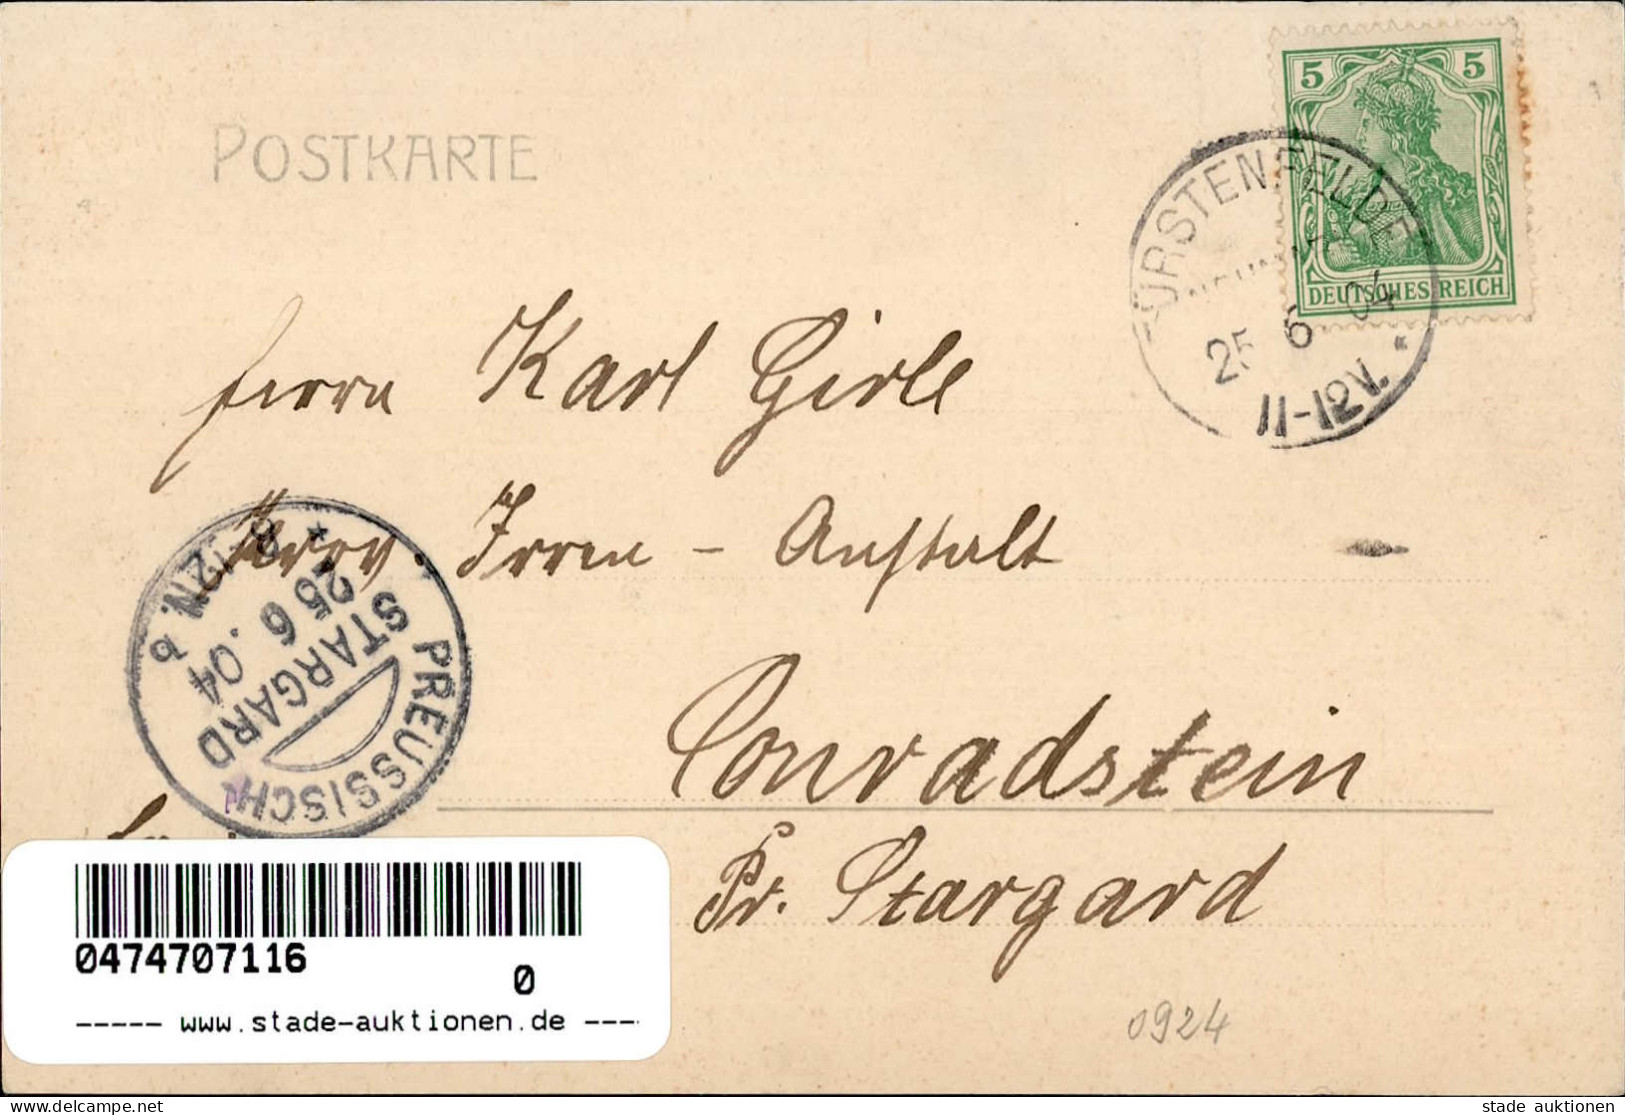 POSTKARTE
5 5
DEUTSCHES REICH
FÜRSTENFELDE
25 6 04
11-12V.
Herrn Karl Girle
Prov. Irren - Anstalt
PREUSSISCH
STARGARD
25 6 .04
12N.
b
Conradstein
Pr. Stargard
0474707116
0
----- www.stade-auktionen.de ----
0924
delcampe.net
stade auktionen